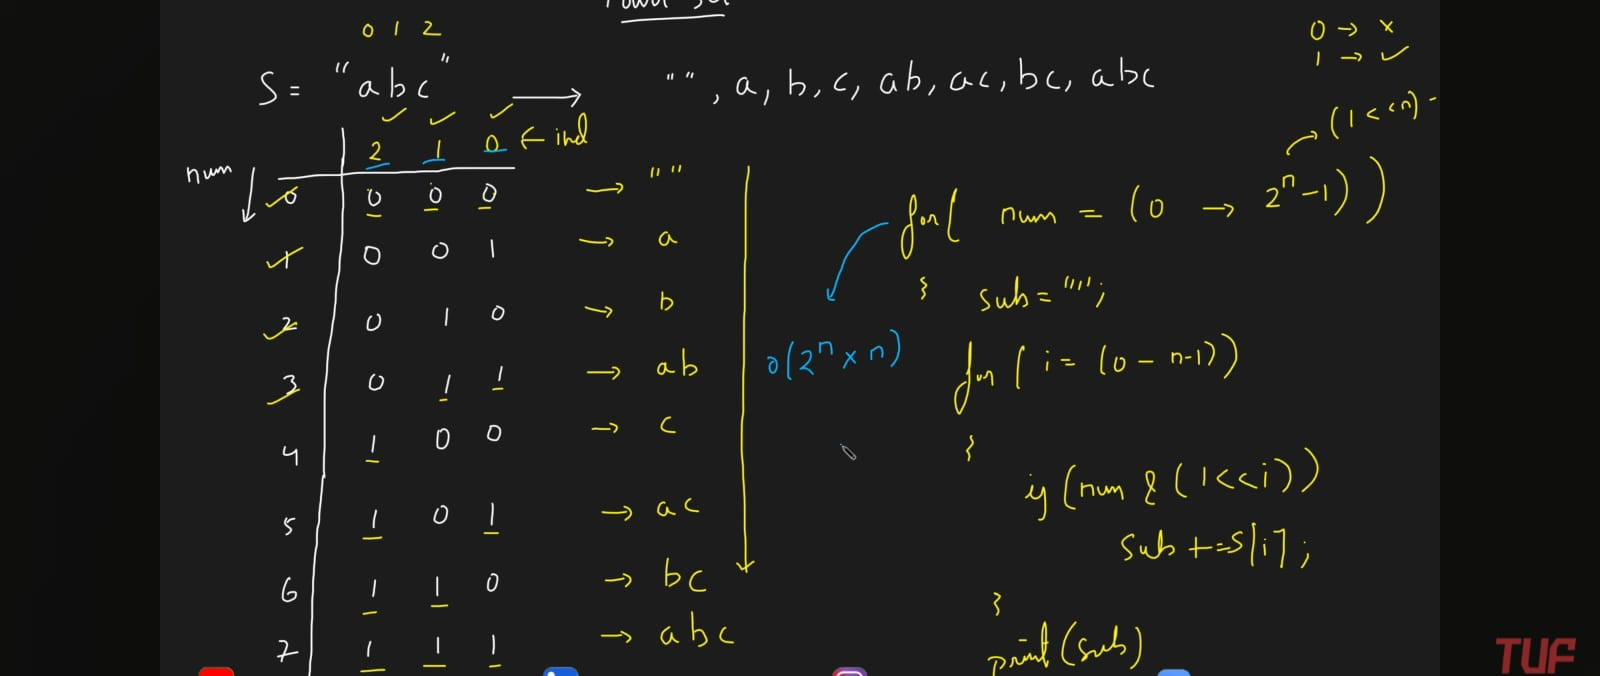 Power Set
0 1 2
S = "abc" → "", a, b, c, ab, ac, bc, abc
0 → x
1 → ✓
2 1 0 ← ind
num
0 0 0 0 → ""
1 0 0 1 → a
2 0 1 0 → b
3 0 1 1 → ab
4 1 0 0 → c
5 1 0 1 → ac
6 1 1 0 → bc
7 1 1 1 → abc
→ (1<<n) -
for( num = (0 → 2ⁿ-1))
{ sub = "";
O(2ⁿ x n)
for ( i = (0 - n-1))
{
if (num & (1<<i))
sub += s[i];
}
print(sub)
TUF